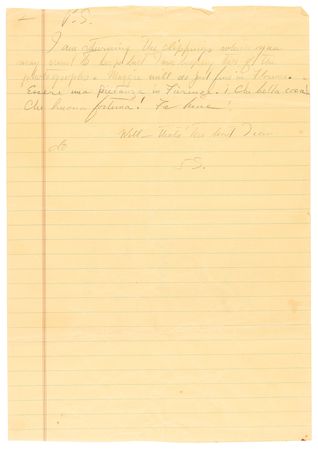 P.S.
I am returning the clippings which you
may want to keep but I am keeping two of the
photographs. Magra will do just fine in Florence.
Essere una in Firenze! Che bella cosa
Che buona fortuna! Fa bene!
Well - that's the last I
S.